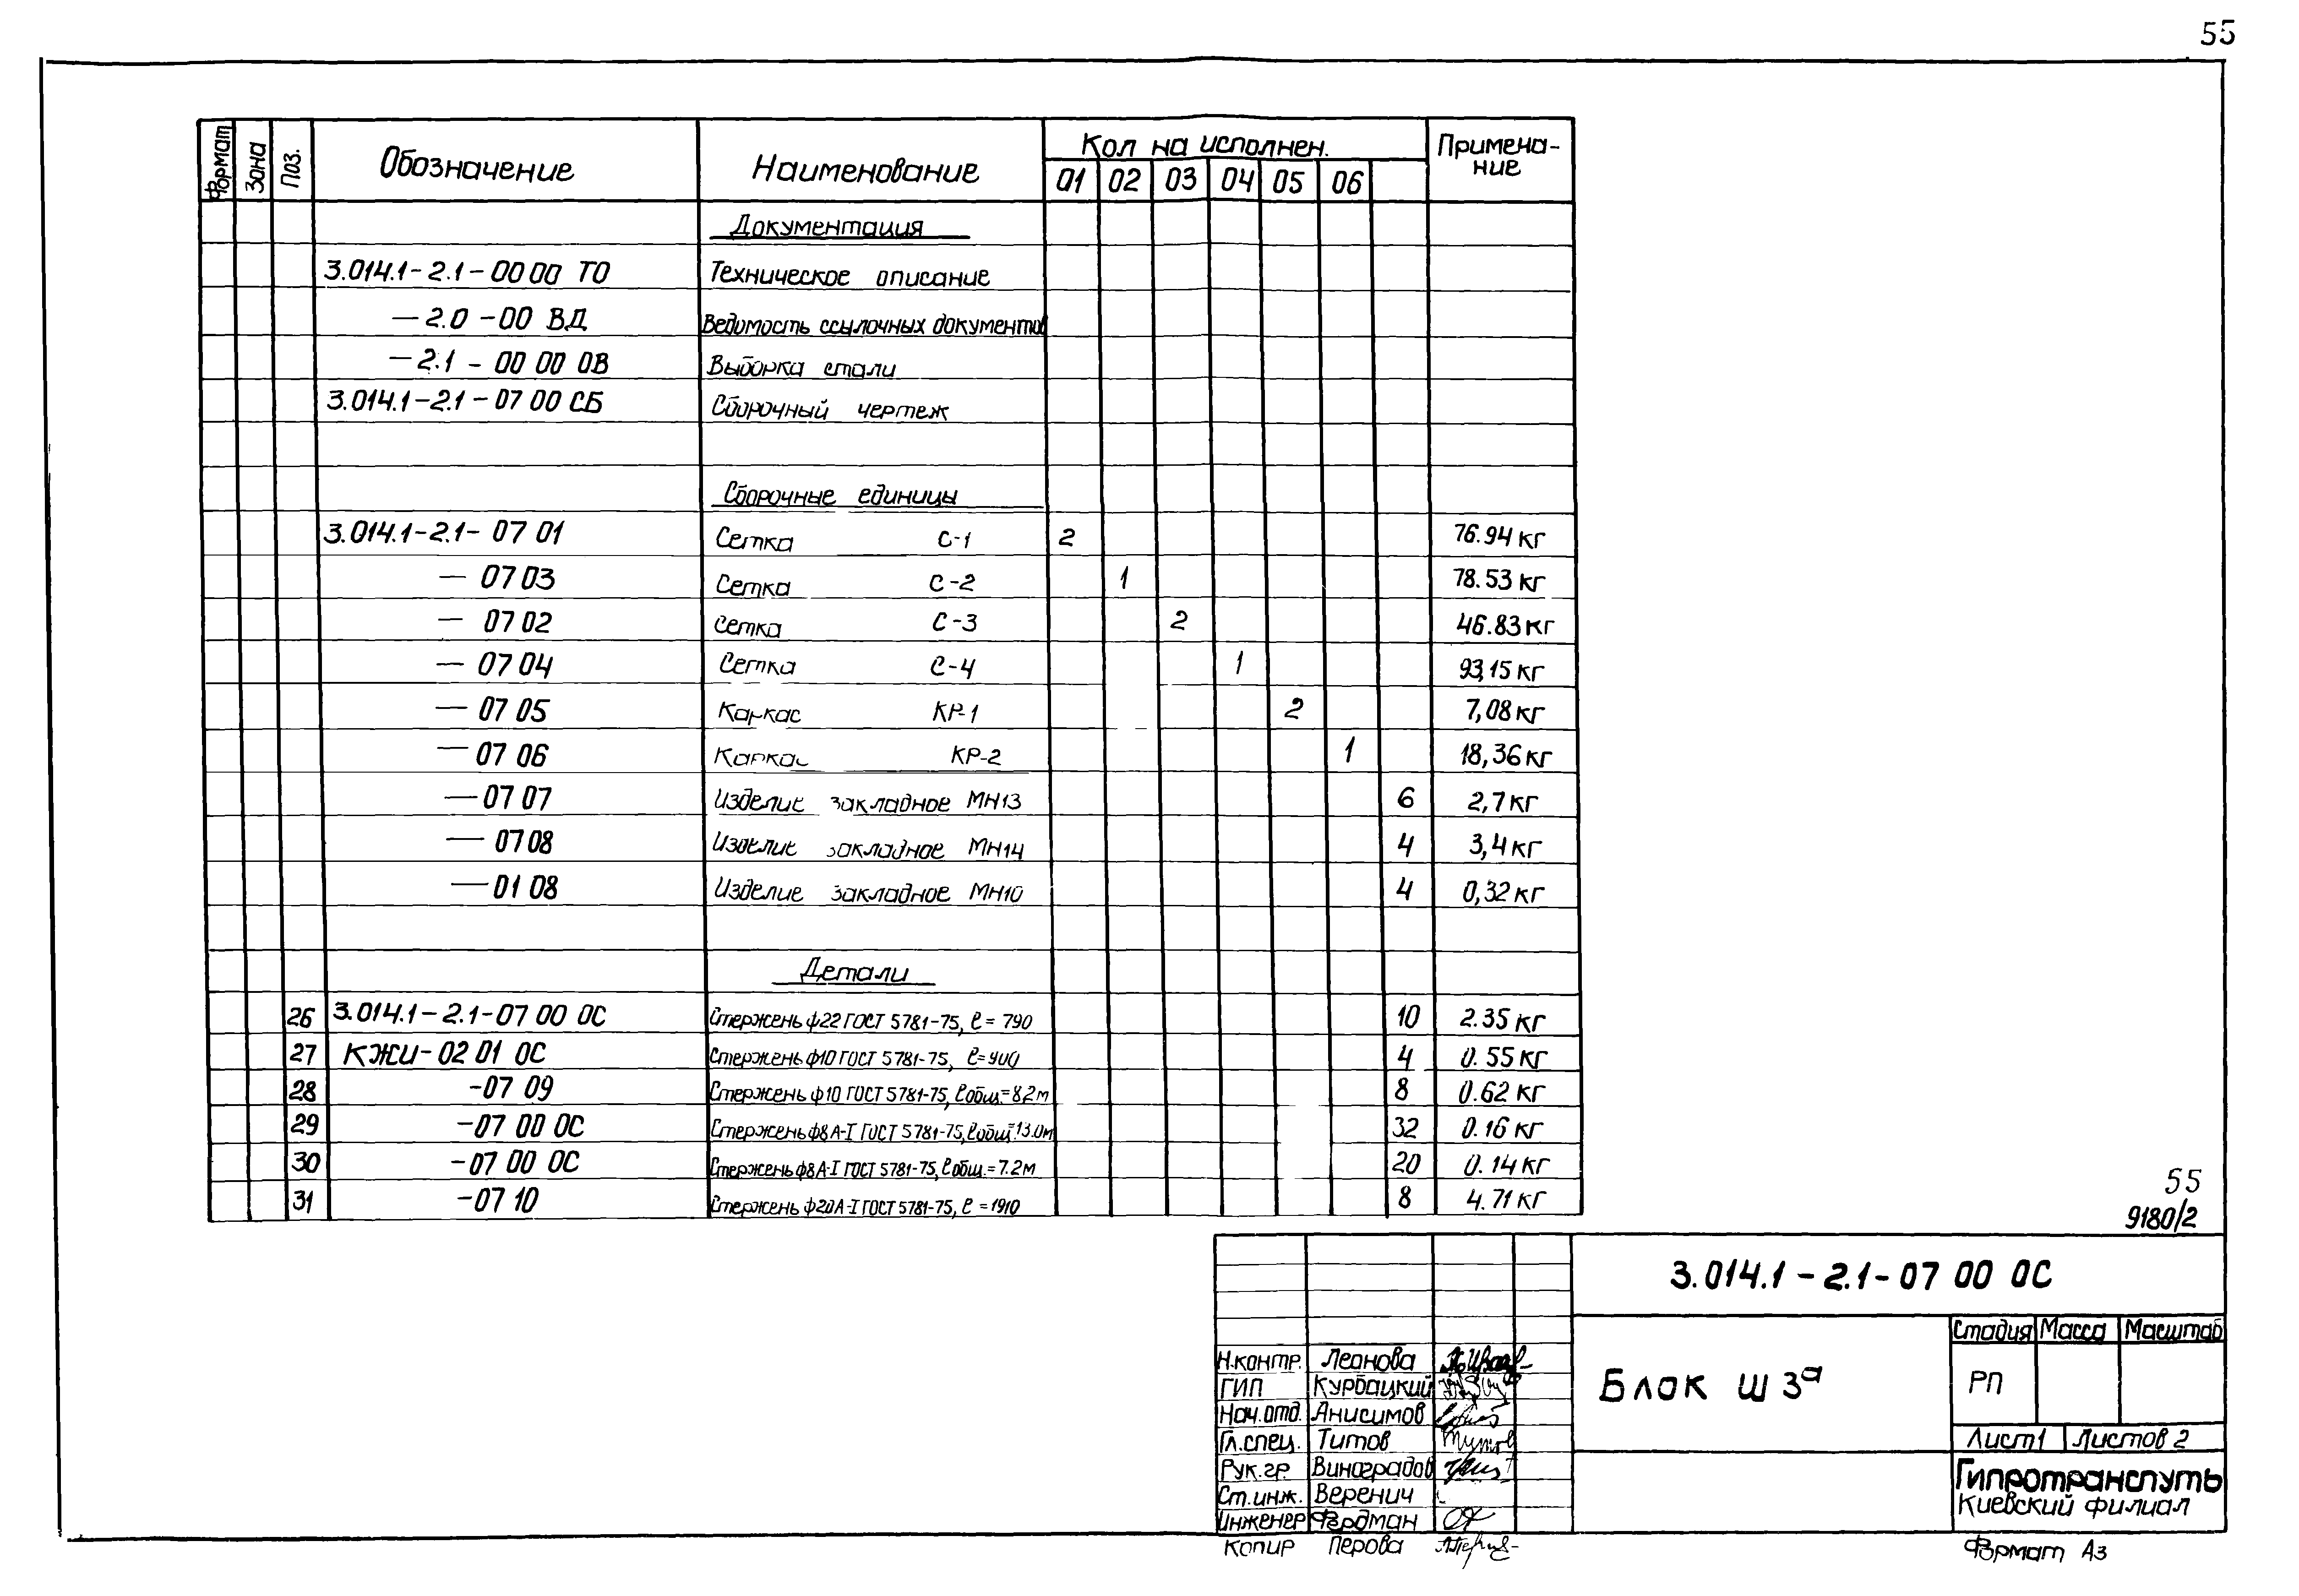 55
Формат Зона Поз. Обозначение Наименование Кол на исполнен. Примеча-
ние
01 02 03 04 05 06
Документация
3.014.1-2.1-00 00 ТО Техническое описание
-2.0-00 ВД Ведомость ссылочных документов
-2.1-00 00 ОВ Выборка стали
3.014.1-2.1-07 00 СБ Сборочный чертеж
Сборочные единицы
3.014.1-2.1-07 01 Сетка С-1 2 76.94 кг
— 07 03 Сетка С-2 1 78.53 кг
— 07 02 Сетка С-3 2 46.83 кг
— 07 04 Сетка С-4 1 93,15 кг
— 07 05 Каркас КР-1 2 7,08 кг
— 07 06 Каркас КР-2 1 18,36 кг
— 07 07 Изделие закладное МН13 6 2,7 кг
— 07 08 Изделие закладное МН14 4 3,4 кг
— 01 08 Изделие закладное МН10 4 0,32 кг
Детали
26 3.014.1-2.1-07 00 ОС Стержень ф22 ГОСТ 5781-75, ℓ=790 10 2.35 кг
27 КЖИ-02 01 ОС Стержень ф10 ГОСТ 5781-75, ℓ=900 4 0.55 кг
28 -07 09 Стержень ф10 ГОСТ 5781-75, ℓобщ.=8.2м 8 0.62 кг
29 -07 00 ОС Стержень ф8 А-I ГОСТ 5781-75, ℓобщ=13.0м 32 0.16 кг
30 -07 00 ОС Стержень ф8 А-I ГОСТ 5781-75, ℓобщ.=7.2м 20 0.14 кг
31 -07 10 Стержень ф20 А-I ГОСТ 5781-75, ℓ=1910 8 4.71 кг
55
9180/2
3.014.1-2.1-07 00 ОС
Стадия Масса Масштаб
Н.контр. Леонова
ГИП Курбацкий
Блок Ш 3а РП
Нач.отд. Анисимов
Гл.спец. Титов
Лист 1 Листов 2
Рук.гр. Виноградов
Ст.инж. Веренич
Инженер Фердман
Гипротранспуть
Киевский филиал
Копир Перова
Формат А3